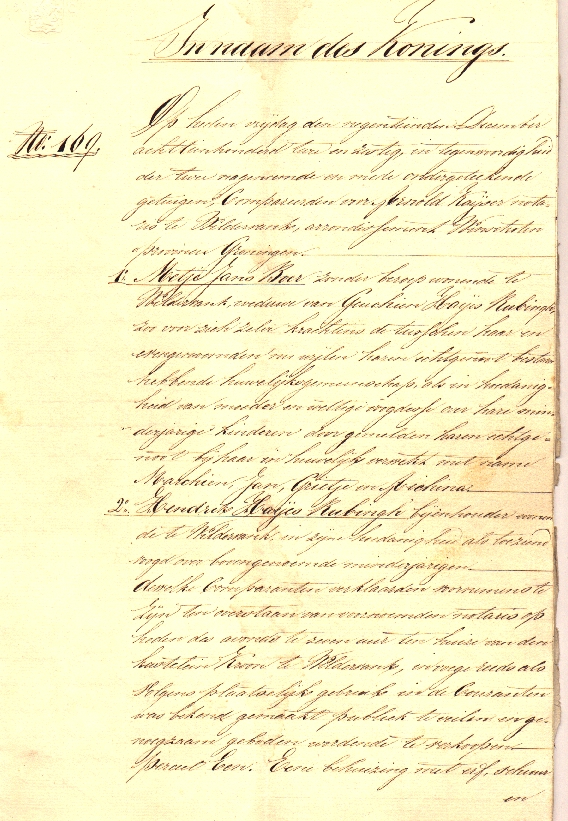 In naam des Konings.
No. 169.
Op heden vrijdag den negentienden December
achttienhonderd twee en zestig, in tegenwoordigheid
der twee nagenoemde en mede ondergeteekende
getuigen, Compareerden voor Arnold Kuijser nota-
ris te Wildervank, arrondissement Winschoten
provincie Groningen.
1o. Metje Jans Boer zonder beroep wonende te
Wildervank, weduwe van Geuchien Haijes Kubingh,
zoo voor zich zelve krachtens de tusschen haar en
evengenoemden nu wijlen haren echtgenoot bestaan
hebbende huwelijksgemeenschap, als in hoedanig-
heid van moeder en wettige voogdesse over hare min-
derjarige kinderen door gemelden haren echtge-
noot bij haar in huwelijk verwekt met name
Marchien, Jan, Grietje en Michina.
2o. Hendrik Haijes Kubingh, wonen-
de te Wildervank, in zijne hoedanigheid als toeziend
voogd over bovengenoemde minderjarigen.
dewelke Comparanten verklaarden voornemens te
zijn ten overstaan van voornoemden notaris op
heden des avonds te zeven uur ten huize van den
kastelein Kroon te Wildervank, en reeds als
volgens plaatselijk gebruik in de Couranten
was bekend gemaakt, publiek te veilen en ge-
noegzaam geboden wordende te verkoopen
Perceel Een. Eene behuizing met erf, schuur
en